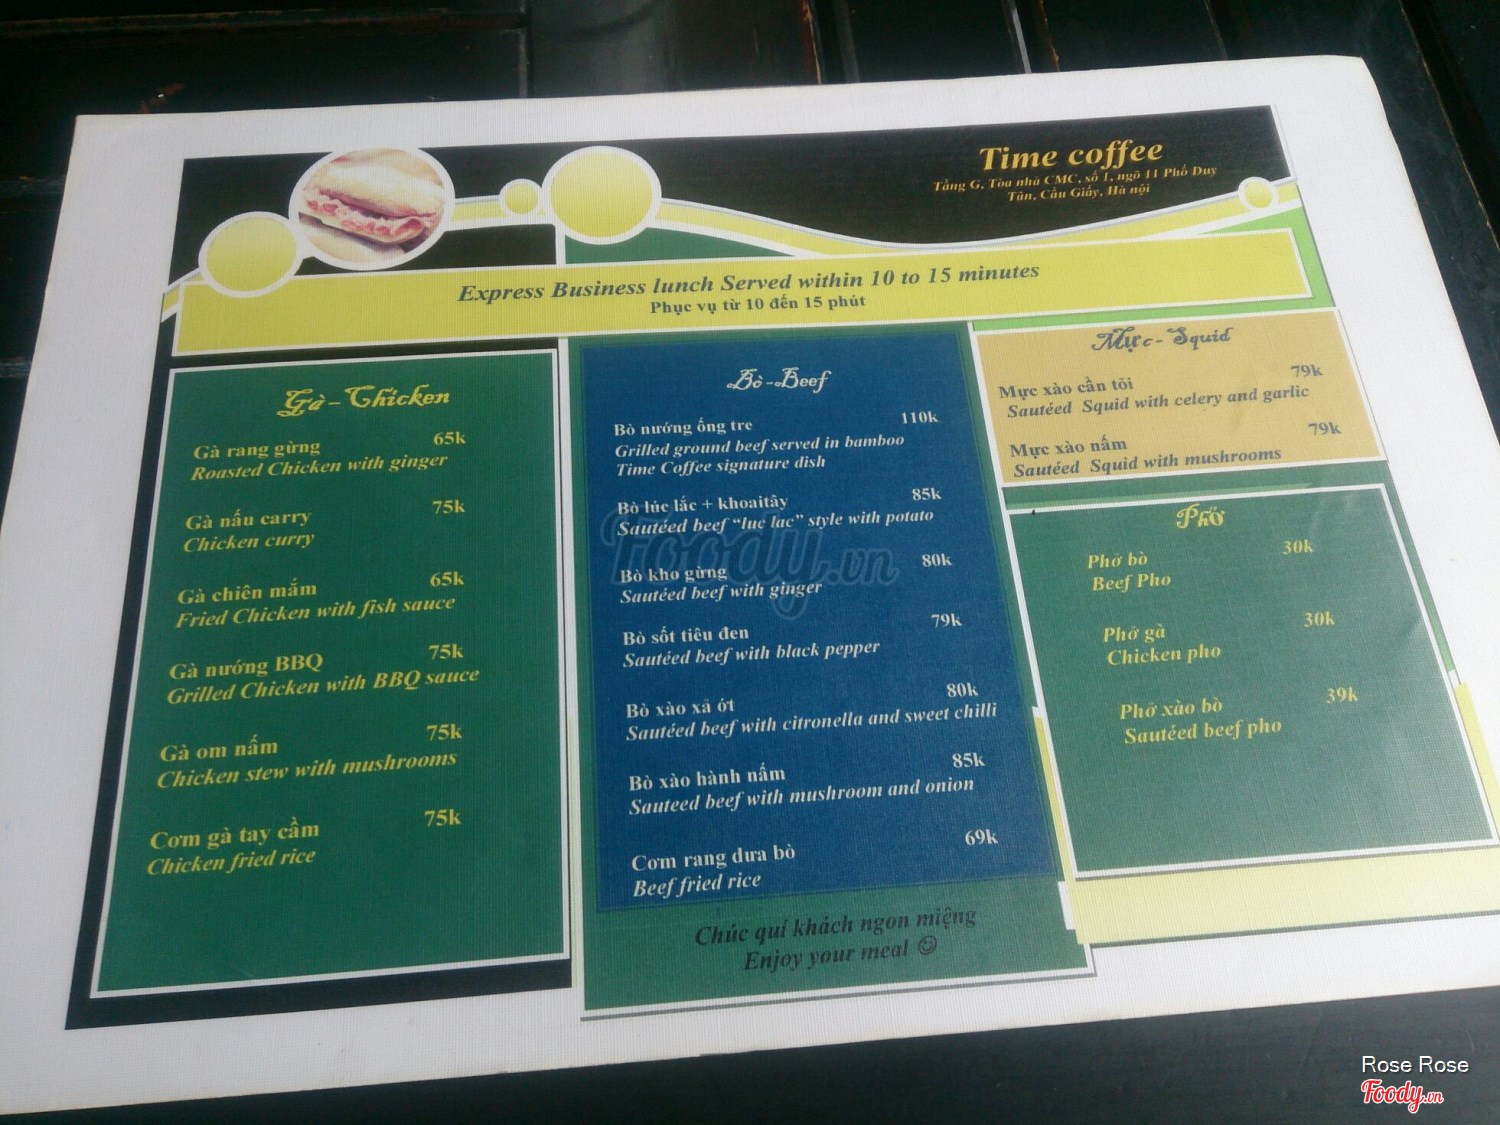 Time coffee
Tầng G, Tòa nhà CMC, số 1, ngõ 11 Phố Duy
Tân, Cầu Giấy, Hà nội
Express Business lunch Served within 10 to 15 minutes
Phục vụ từ 10 đến 15 phút
Gà - Chicken
Gà rang gừng 65k
Roasted Chicken with ginger
Gà nấu carry 75k
Chicken curry
Gà chiên mắm 65k
Fried Chicken with fish sauce
Gà nướng BBQ 75k
Grilled Chicken with BBQ sauce
Gà om nấm 75k
Chicken stew with mushrooms
Cơm gà tay cầm 75k
Chicken fried rice
Bò - Beef
Bò nướng ống tre 110k
Grilled ground beef served in bamboo
Time Coffee signature dish
Bò lúc lắc + khoaitây 85k
Sautéed beef “luc lac” style with potato
Bò kho gừng 80k
Sautéed beef with ginger
Bò sốt tiêu đen 79k
Sautéed beef with black pepper
Bò xào xả ớt 80k
Sautéed beef with citronella and sweet chilli
Bò xào hành nấm 85k
Sauteed beef with mushroom and onion
Cơm rang dưa bò 69k
Beef fried rice
Chúc quí khách ngon miệng
Enjoy your meal ☺
Mực - Squid
Mực xào cần tỏi 79k
Sautéed Squid with celery and garlic
Mực xào nấm 79k
Sautéed Squid with mushrooms
Phở
Phở bò 30k
Beef Pho
Phở gà 30k
Chicken pho
Phở xào bò 39k
Sautéed beef pho
Foody.vn
Rose Rose
Foody.vn